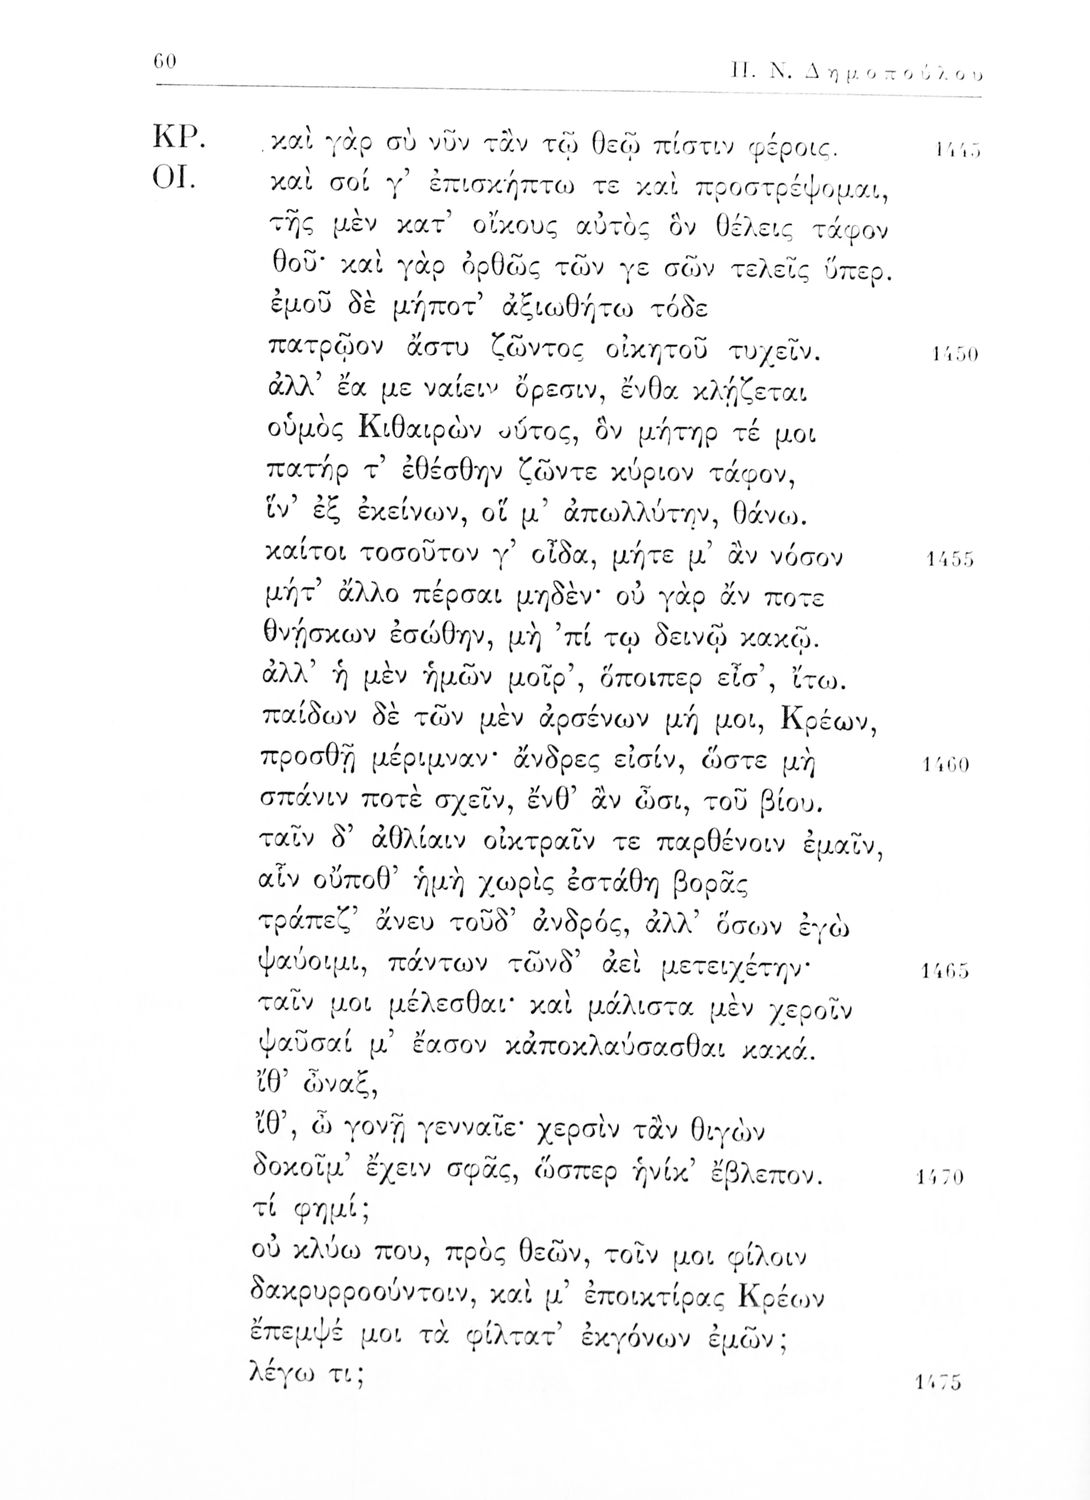 60 Π. Ν. Δημοπούλου
ΚΡ. καὶ γὰρ σὺ νῦν τἂν τῷ θεῷ πίστιν φέροις. 1445
ΟΙ. καὶ σοί γ’ ἐπισκήπτω τε καὶ προστρέψομαι,
τῆς μὲν κατ’ οἴκους αὐτὸς ὃν θέλεις τάφον
θοῦ· καὶ γὰρ ὀρθῶς τῶν γε σῶν τελεῖς ὕπερ.
ἐμοῦ δὲ μήποτ’ ἀξιωθήτω τόδε
πατρῷον ἄστυ ζῶντος οἰκητοῦ τυχεῖν. 1450
ἀλλ’ ἔα με ναίειν ὄρεσιν, ἔνθα κλῄζεται
οὑμὸς Κιθαιρὼν οὗτος, ὃν μήτηρ τέ μοι
πατήρ τ’ ἐθέσθην ζῶντε κύριον τάφον,
ἵν’ ἐξ ἐκείνων, οἵ μ’ ἀπωλλύτην, θάνω.
καίτοι τοσοῦτον γ’ οἶδα, μήτε μ’ ἂν νόσον 1455
μήτ’ ἄλλο πέρσαι μηδὲν· οὐ γὰρ ἄν ποτε
θνῄσκων ἐσώθην, μὴ ’πί τῳ δεινῷ κακῷ.
ἀλλ’ ἡ μὲν ἡμῶν μοῖρ’, ὅποιπερ εἶσ’, ἴτω.
παίδων δὲ τῶν μὲν ἀρσένων μή μοι, Κρέων,
προσθῇ μέριμναν· ἄνδρες εἰσίν, ὥστε μὴ 1460
σπάνιν ποτὲ σχεῖν, ἔνθ’ ἂν ὦσι, τοῦ βίου.
ταῖν δ’ ἀθλίαιν οἰκτραῖν τε παρθένοιν ἐμαῖν,
αἷν οὔποθ’ ἡμὴ χωρὶς ἐστάθη βορᾶς
τράπεζ’ ἄνευ τοῦδ’ ἀνδρός, ἀλλ’ ὅσων ἐγὼ
ψαύοιμι, πάντων τῶνδ’ ἀεὶ μετειχέτην· 1465
ταῖν μοι μέλεσθαι· καὶ μάλιστα μὲν χεροῖν
ψαῦσαί μ’ ἔασον κἀποκλαύσασθαι κακά.
ἴθ’ ὦναξ,
ἴθ’, ὦ γονῇ γενναῖε· χερσὶν τἂν θιγὼν
δοκοῖμ’ ἔχειν σφᾶς, ὥσπερ ἡνίκ’ ἔβλεπον. 1470
τί φημί;
οὐ κλύω που, πρὸς θεῶν, τοῖν μοι φίλοιν
δακρυρροούντοιν, καὶ μ’ ἐποικτίρας Κρέων
ἔπεμψέ μοι τὰ φίλτατ’ ἐκγόνων ἐμῶν;
λέγω τι; 1475